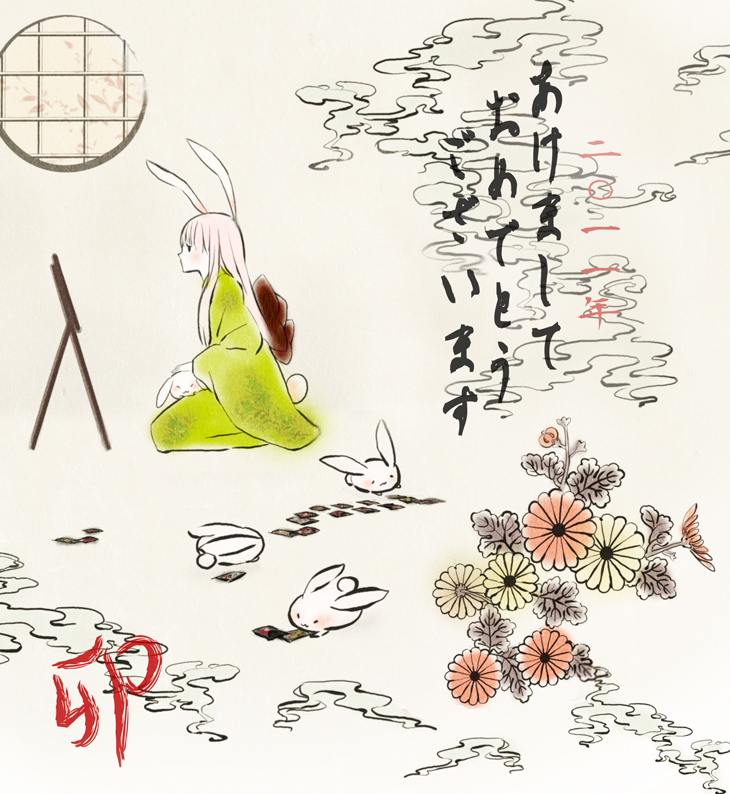 二〇一一年
あけまして
おめでとう
ございます
卯